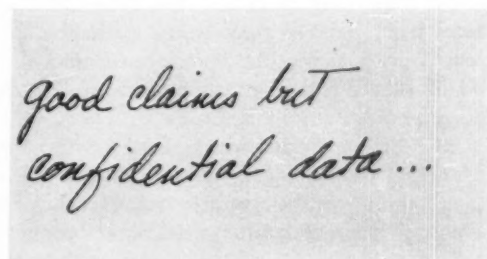 good claims but
confidential data...